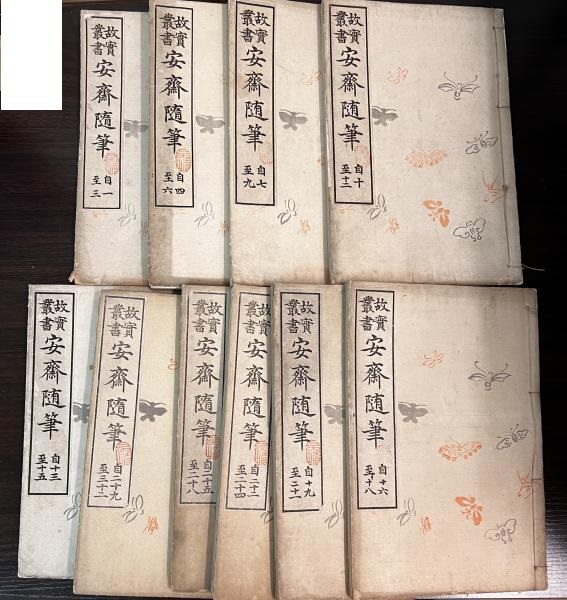 故實
叢書
安齋隨筆
自一
至三
故實
叢書
安齋隨筆
自四
至六
故實
叢書
安齋隨筆
自七
至九
故實
叢書
安齋隨筆
自十
至十二
故實
叢書
安齋隨筆
自十三
至十五
故實
叢書
安齋隨筆
自二十九
至三十二
故實
叢書
安齋隨筆
自二十五
至二十八
故實
叢書
安齋隨筆
自二十一
至二十四
故實
叢書
安齋隨筆
自十九
至二十
故實
叢書
安齋隨筆
自十六
至十八